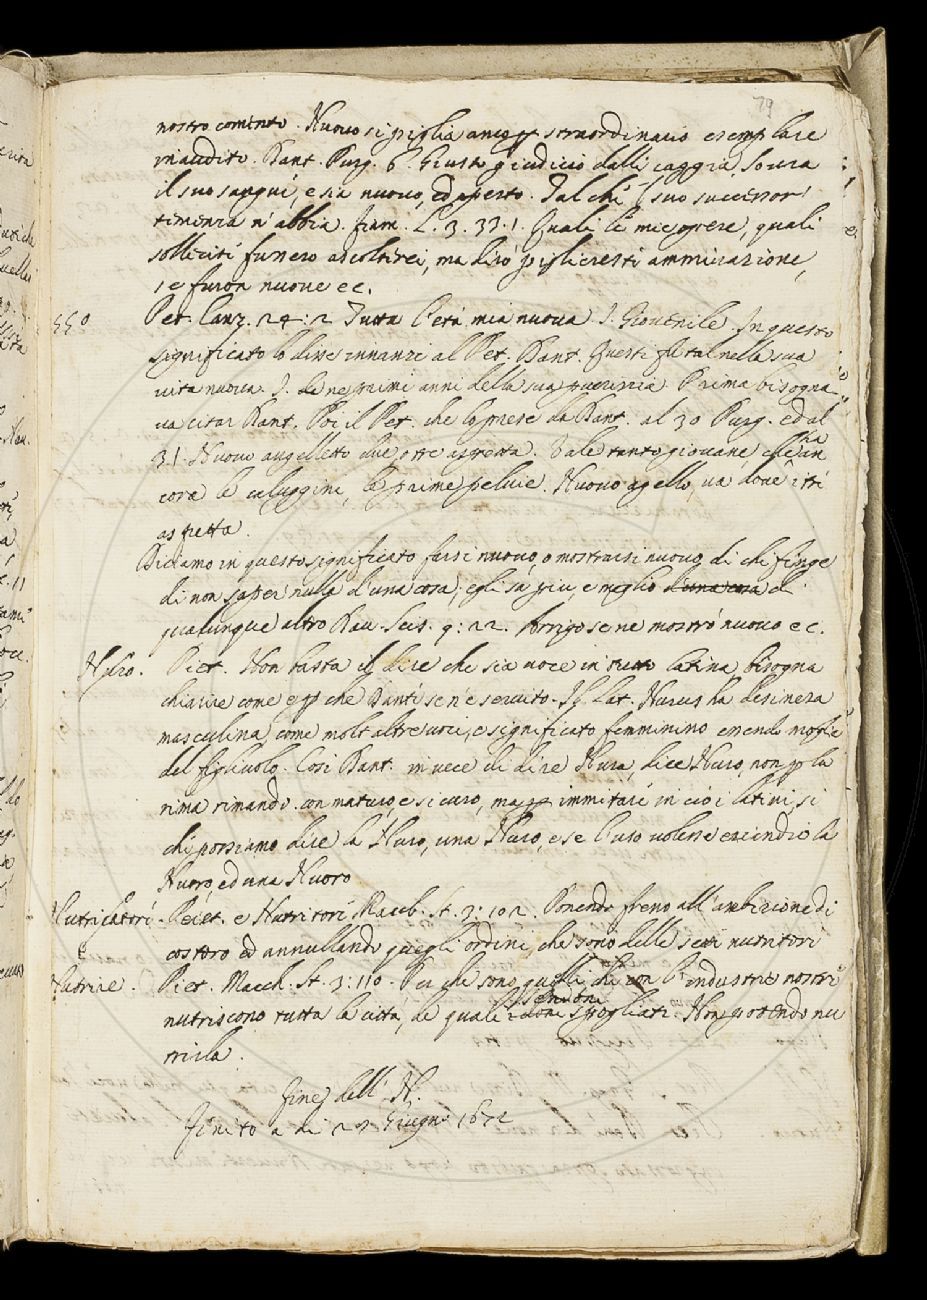 79
nostro comento. Nuovo si piglia anco p straordinario esemplare
inaudito. Dant. Purg. 6. Giusto giudicio dalle caggia sovra
il suo sangue, e sia nuovo, ed aperto. Tal che 'l suo successor
temenza n'abbia. Fiam. L. 3. 33. 1. Quali le mie opere, quali
solleciti fussero ascolterei, ma dirò piglieresti ammirazione,
se furon nuove ec.
550 Pet. Canz. 24: 2 Tutta l'età mia nuova I. Giovenile. In questo
significato lo disse innanzi al Pet. Dant. Questi fu tal nella sua
vita nuova. I. ne primi anni della sua puerizia. Prima bisogna
va citar Dant. Poi il Pet. che lo prese da Dant. al 30 Purg. ed al
31. Nuovo augelletto due o tre aspetta. Vale tanto giovane che ha an
cora le caluggini, le prime peluie. Nuovo agello, va dove i tre
aspetta.
Diciamo in questo significato farsi nuovo, o mostrarsi nuovo, di chi finge
di non saper nulla d'una cosa, egli sa piu, e meglio d'una cosa di
qualunque altro Dav. Scis. 9: 22. Arrigo se ne mostrò nuovo ec.
Nuro. Piet. Non basta il dire che sia voce in tutto latina, bisogna
chiarire come e p che Dante se n'è servito. Il Lat. Nurus ha desinenza
masculina, come molt'altre voci, e significato femminino essendo moglie
del figliuolo. Così Dant. in vece di dire Nura, dice Nuro, non p la
rima rimando con maturo, e sicuro, ma p immitare in ciò i latini, si
che possiamo dire la Nuro, una Nuro, e se l'uso volesse eziandio la
Nuora, ed una Nuora
Nutricatori Peiet. e Nutritori Macch. St. 3: 102. Ponendo freno all'ambizione di
e costoro ed annullando quegli ordini che sono delle sette nutritori
Nutrire. Piet. Macch. St. 3: 110. Perche sono quelli che con l'industrie nostri
nutriscono tutta la città, de quali essendone spogliati. Non potendo nu
trirla.
fine dell' N.
Finito a di 27 Giugno 1672